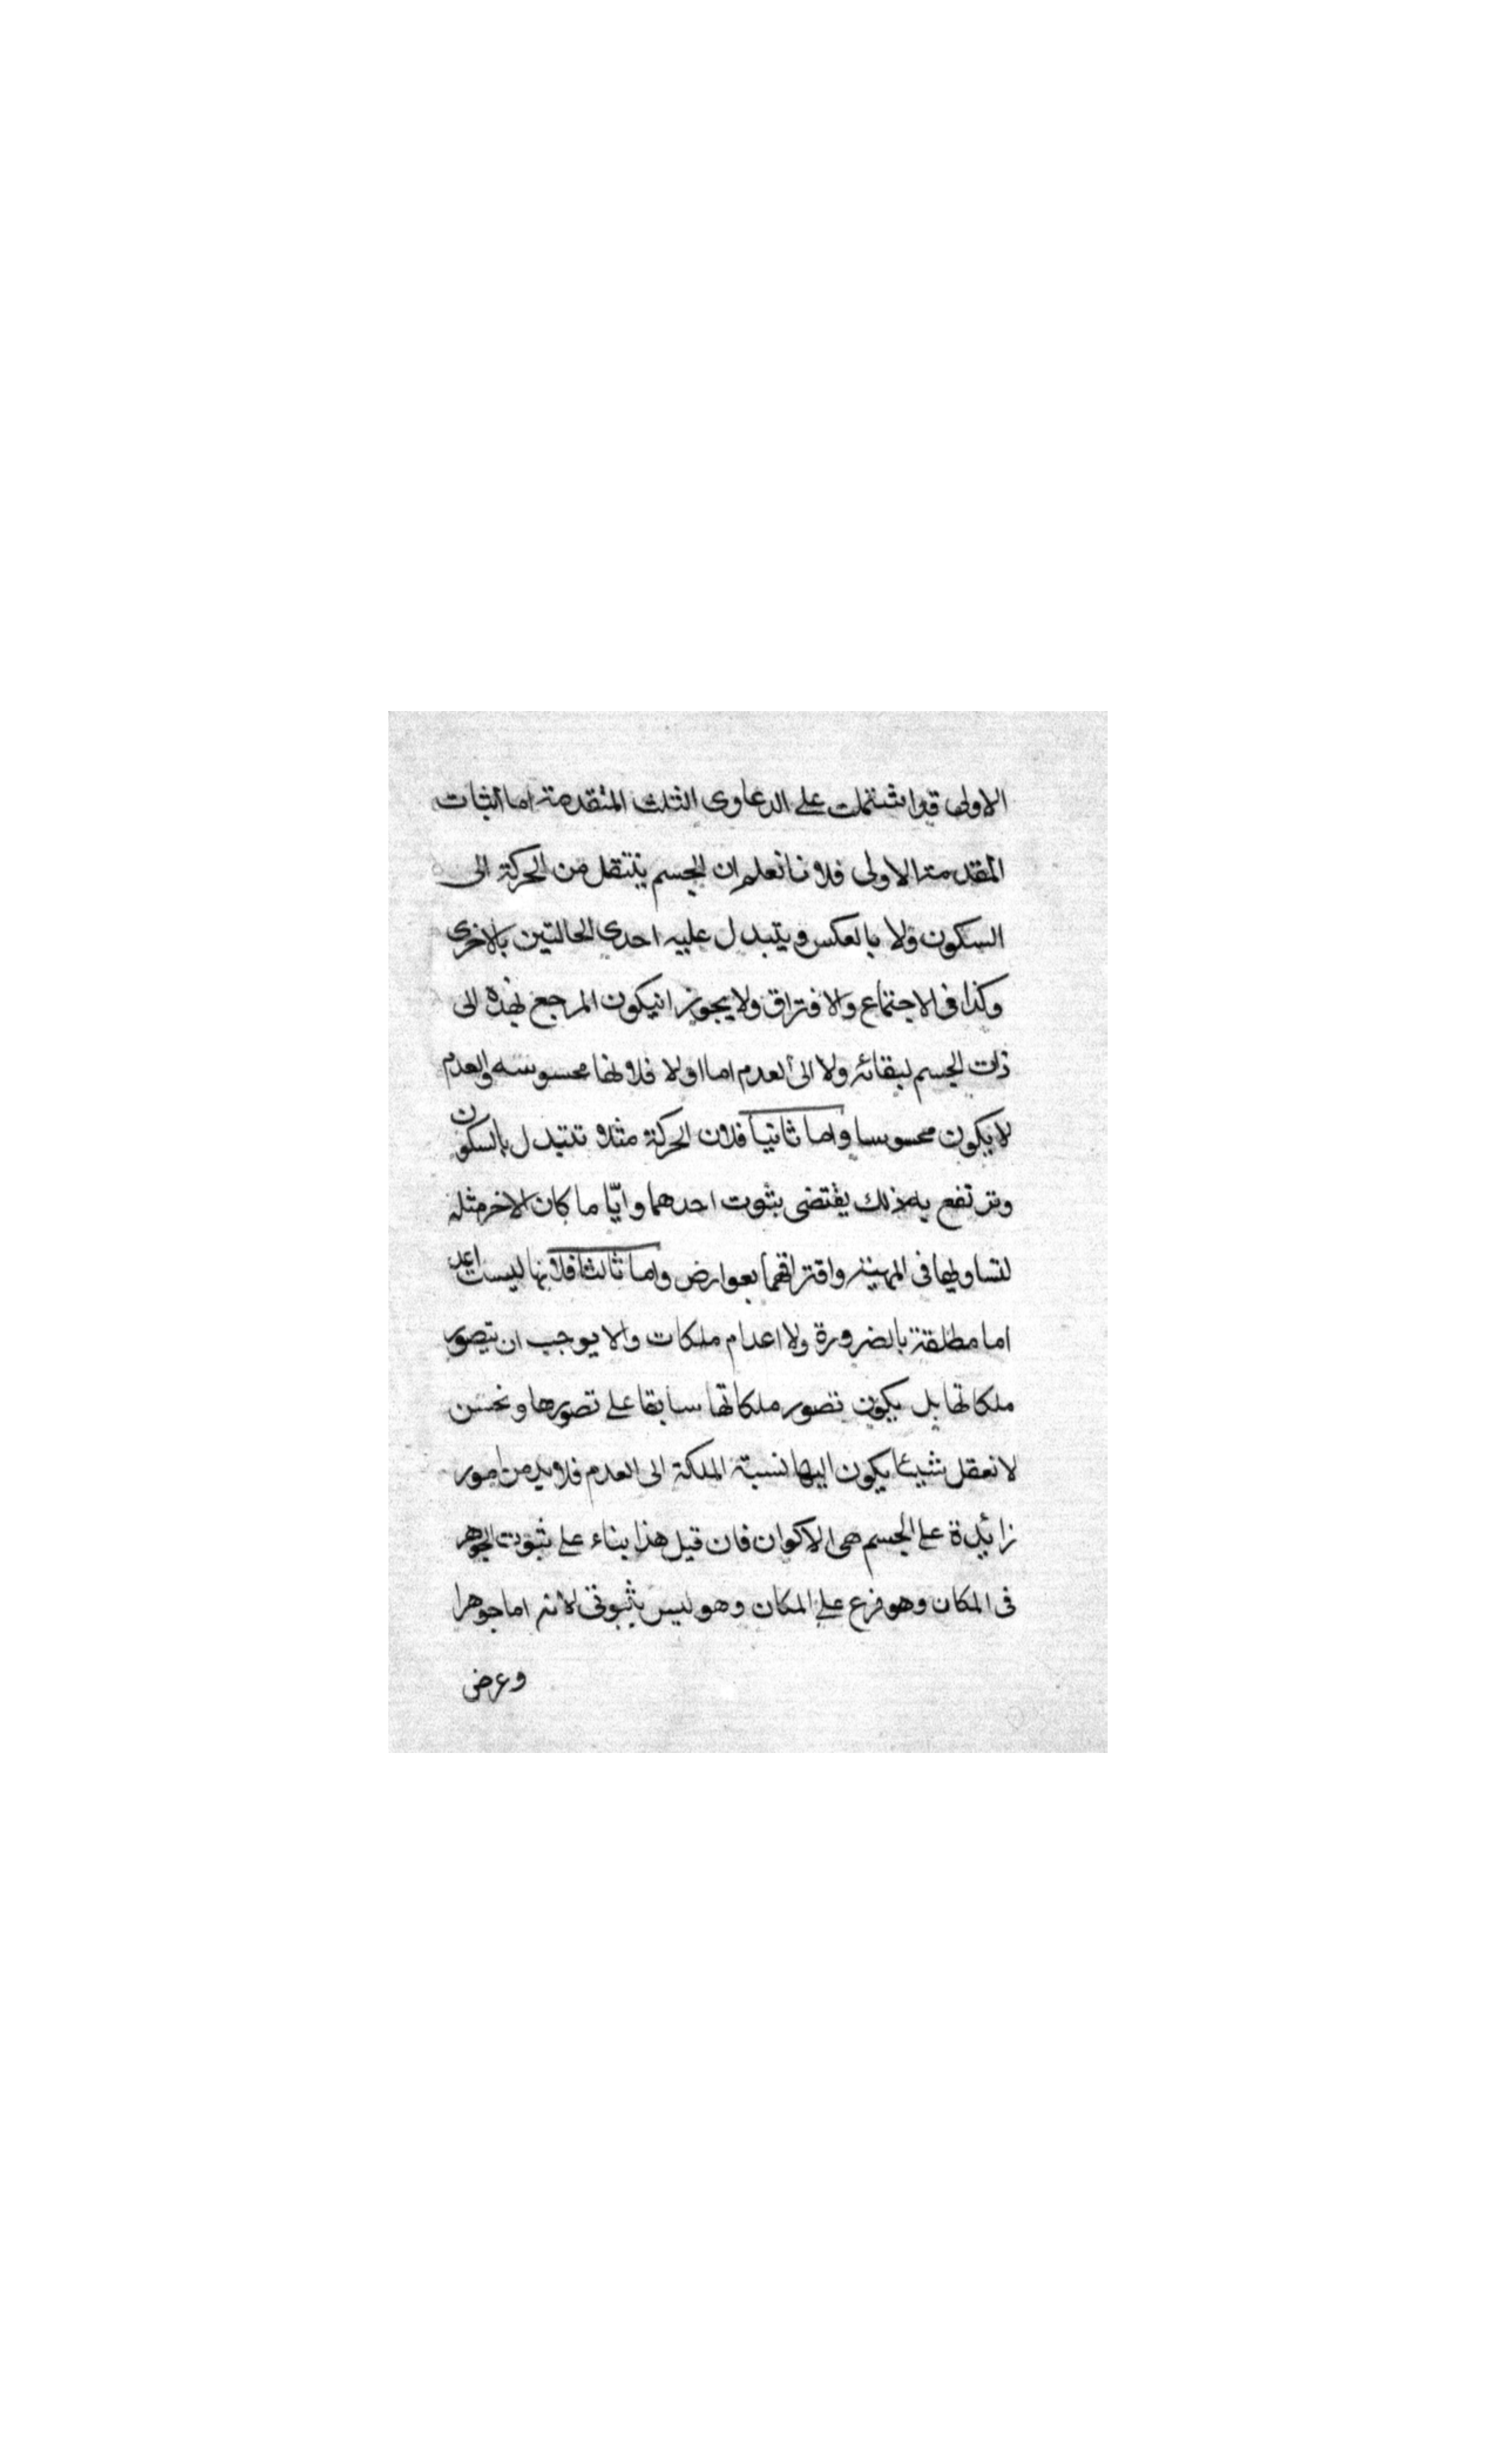 الاولى قد اشتملت على الدعاوى الثلث المتقدمة اما اثبات
المقدمة الاولى فلانا نعلم ان الجسم ينتقل من الحركة الى
السكون ولا بالعكس ويتبدل عليه احدى الحالتين بالاخرى
وكذا فى الاجتماع والافتراق ولا يجوز انيكون المرجع بهذه الى
ذات الجسم لبقائه ولا الى العدم اما اولا فلانها محسوسه والعدم
لا يكون محسوسا واما ثانيا فلان الحركة مثلا تتبدل بالسكون
وترتفع به وذلك يقتضى بثوت احدهما وايّا ما كان الاخر مثله
لتساويها فى المهية وافتراقهما بعوارض واما ثالثا فلانها ليست اعد
اما مطلقة بالضرورة ولا اعدام ملكات والا يوجب ان يتصور
ملكاتها بل يكون تصور ملكاتها سابقا على تصورها ونحن
لا نعقل شيئا يكون اليها نسبة الملكة الى العدم فلابد من امور
زائدة على الجسم هى الاكوان فان قيل هذا بناء على ثبوت الجوهر
فى المكان وهو فرع على المكان وهو ليس بثبوتى لانه اما جوهرا
وعرض